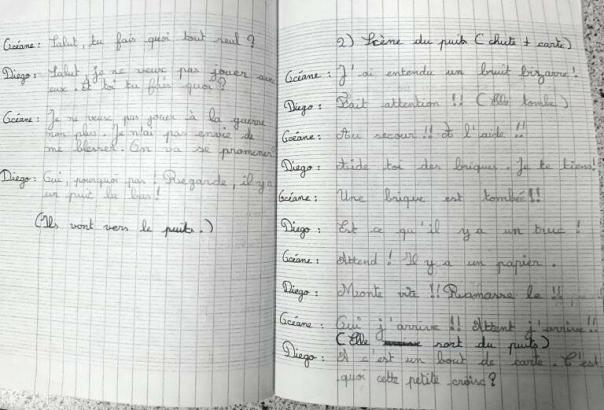 Océane : Salut, tu fais quoi tout seul ?
Diego : Salut, je ne veux pas jouer avec
eux. Et toi tu fais quoi ?
Océane : Je ne veux pas jouer à la guerre
non plus. Je n'ai pas envie de
me blesser. On va se promener
Diego : Oui, pourquoi pas ! Regarde, il y a
un puit la bas !
(Ils vont vers le puits.)
2) Scène du puits (chute + carte)
Océane : J'ai entendu un bruit bizarre.
Diego : Fait attention !! (Elle tombe)
Océane : Au secour !! A l'aide !!
Diego : Aide toi des briques. Je te tiens!
Océane : Une brique est tombée !!
Diego : Est ce qu'il y a un truc !
Océane : Attend ! Il y a un papier.
Diego : Monte vite !! Ramasse le !!
Océane : Oui j'arrive !! Attent j'arrive !!
(Elle sort du puits)
Diego : A c'est un bout de carte. C'est
quoi cette petite croix ?